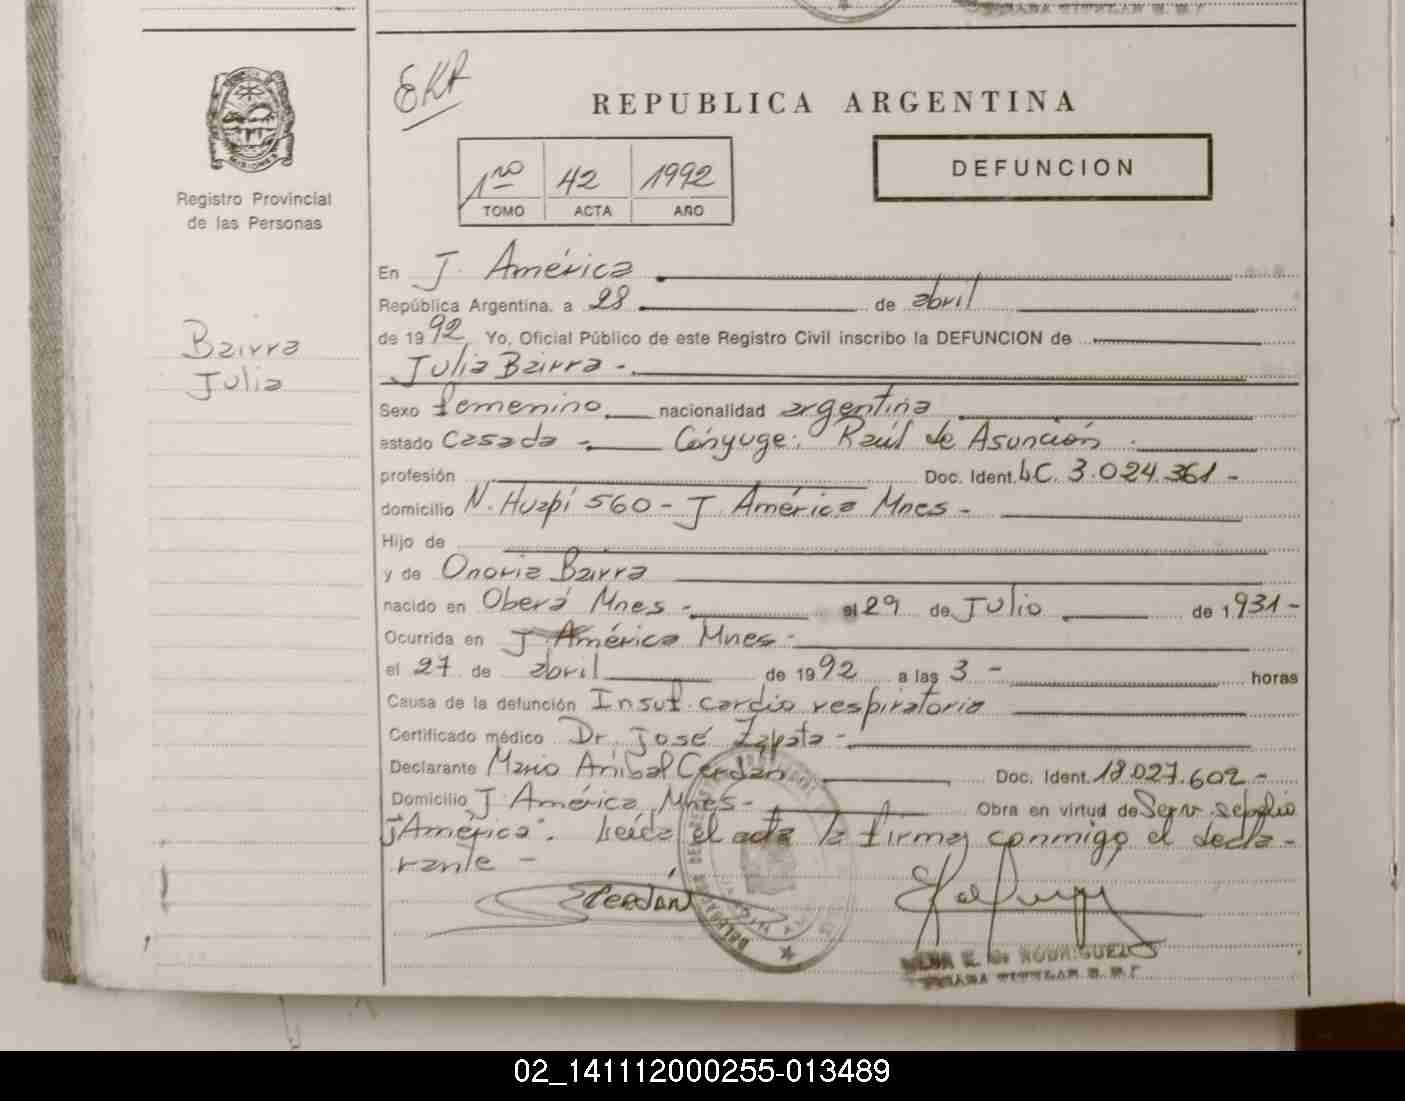 REPUBLICA ARGENTINA
DEFUNCION
1ro 42 1992
TOMO ACTA AÑO
Registro Provincial
de las Personas
Bairra
Julia
En J. América
República Argentina, a 28 de abril
de 1992 Yo, Oficial Público de este Registro Civil inscribo la DEFUNCION de
Julia Bairra -
Sexo femenino nacionalidad argentina
estado Casada - Cónyuge: Raúl de Asunción
profesión Doc. Ident. LC. 3.024.361 -
domicilio N. Huapí 560 - J. América Mnes -
Hijo de
y de Onoria Bairra
nacido en Oberá Mnes - el 29 de Julio de 1931 -
Ocurrida en J América Mnes -
el 27 de abril de 1992 a las 3 - horas
Causa de la defunción Insuf. cardio respiratoria
Certificado médico Dr. José Zapata -
Declarante Mario Aníbal Cerdán Doc. Ident. 18.027.602 -
Domicilio J América Mnes - Obra en virtud de Serv. sepelio
"J América". Leída el acta la firma conmigo el decla-
rante -
CERDÁN
02_141112000255-013489